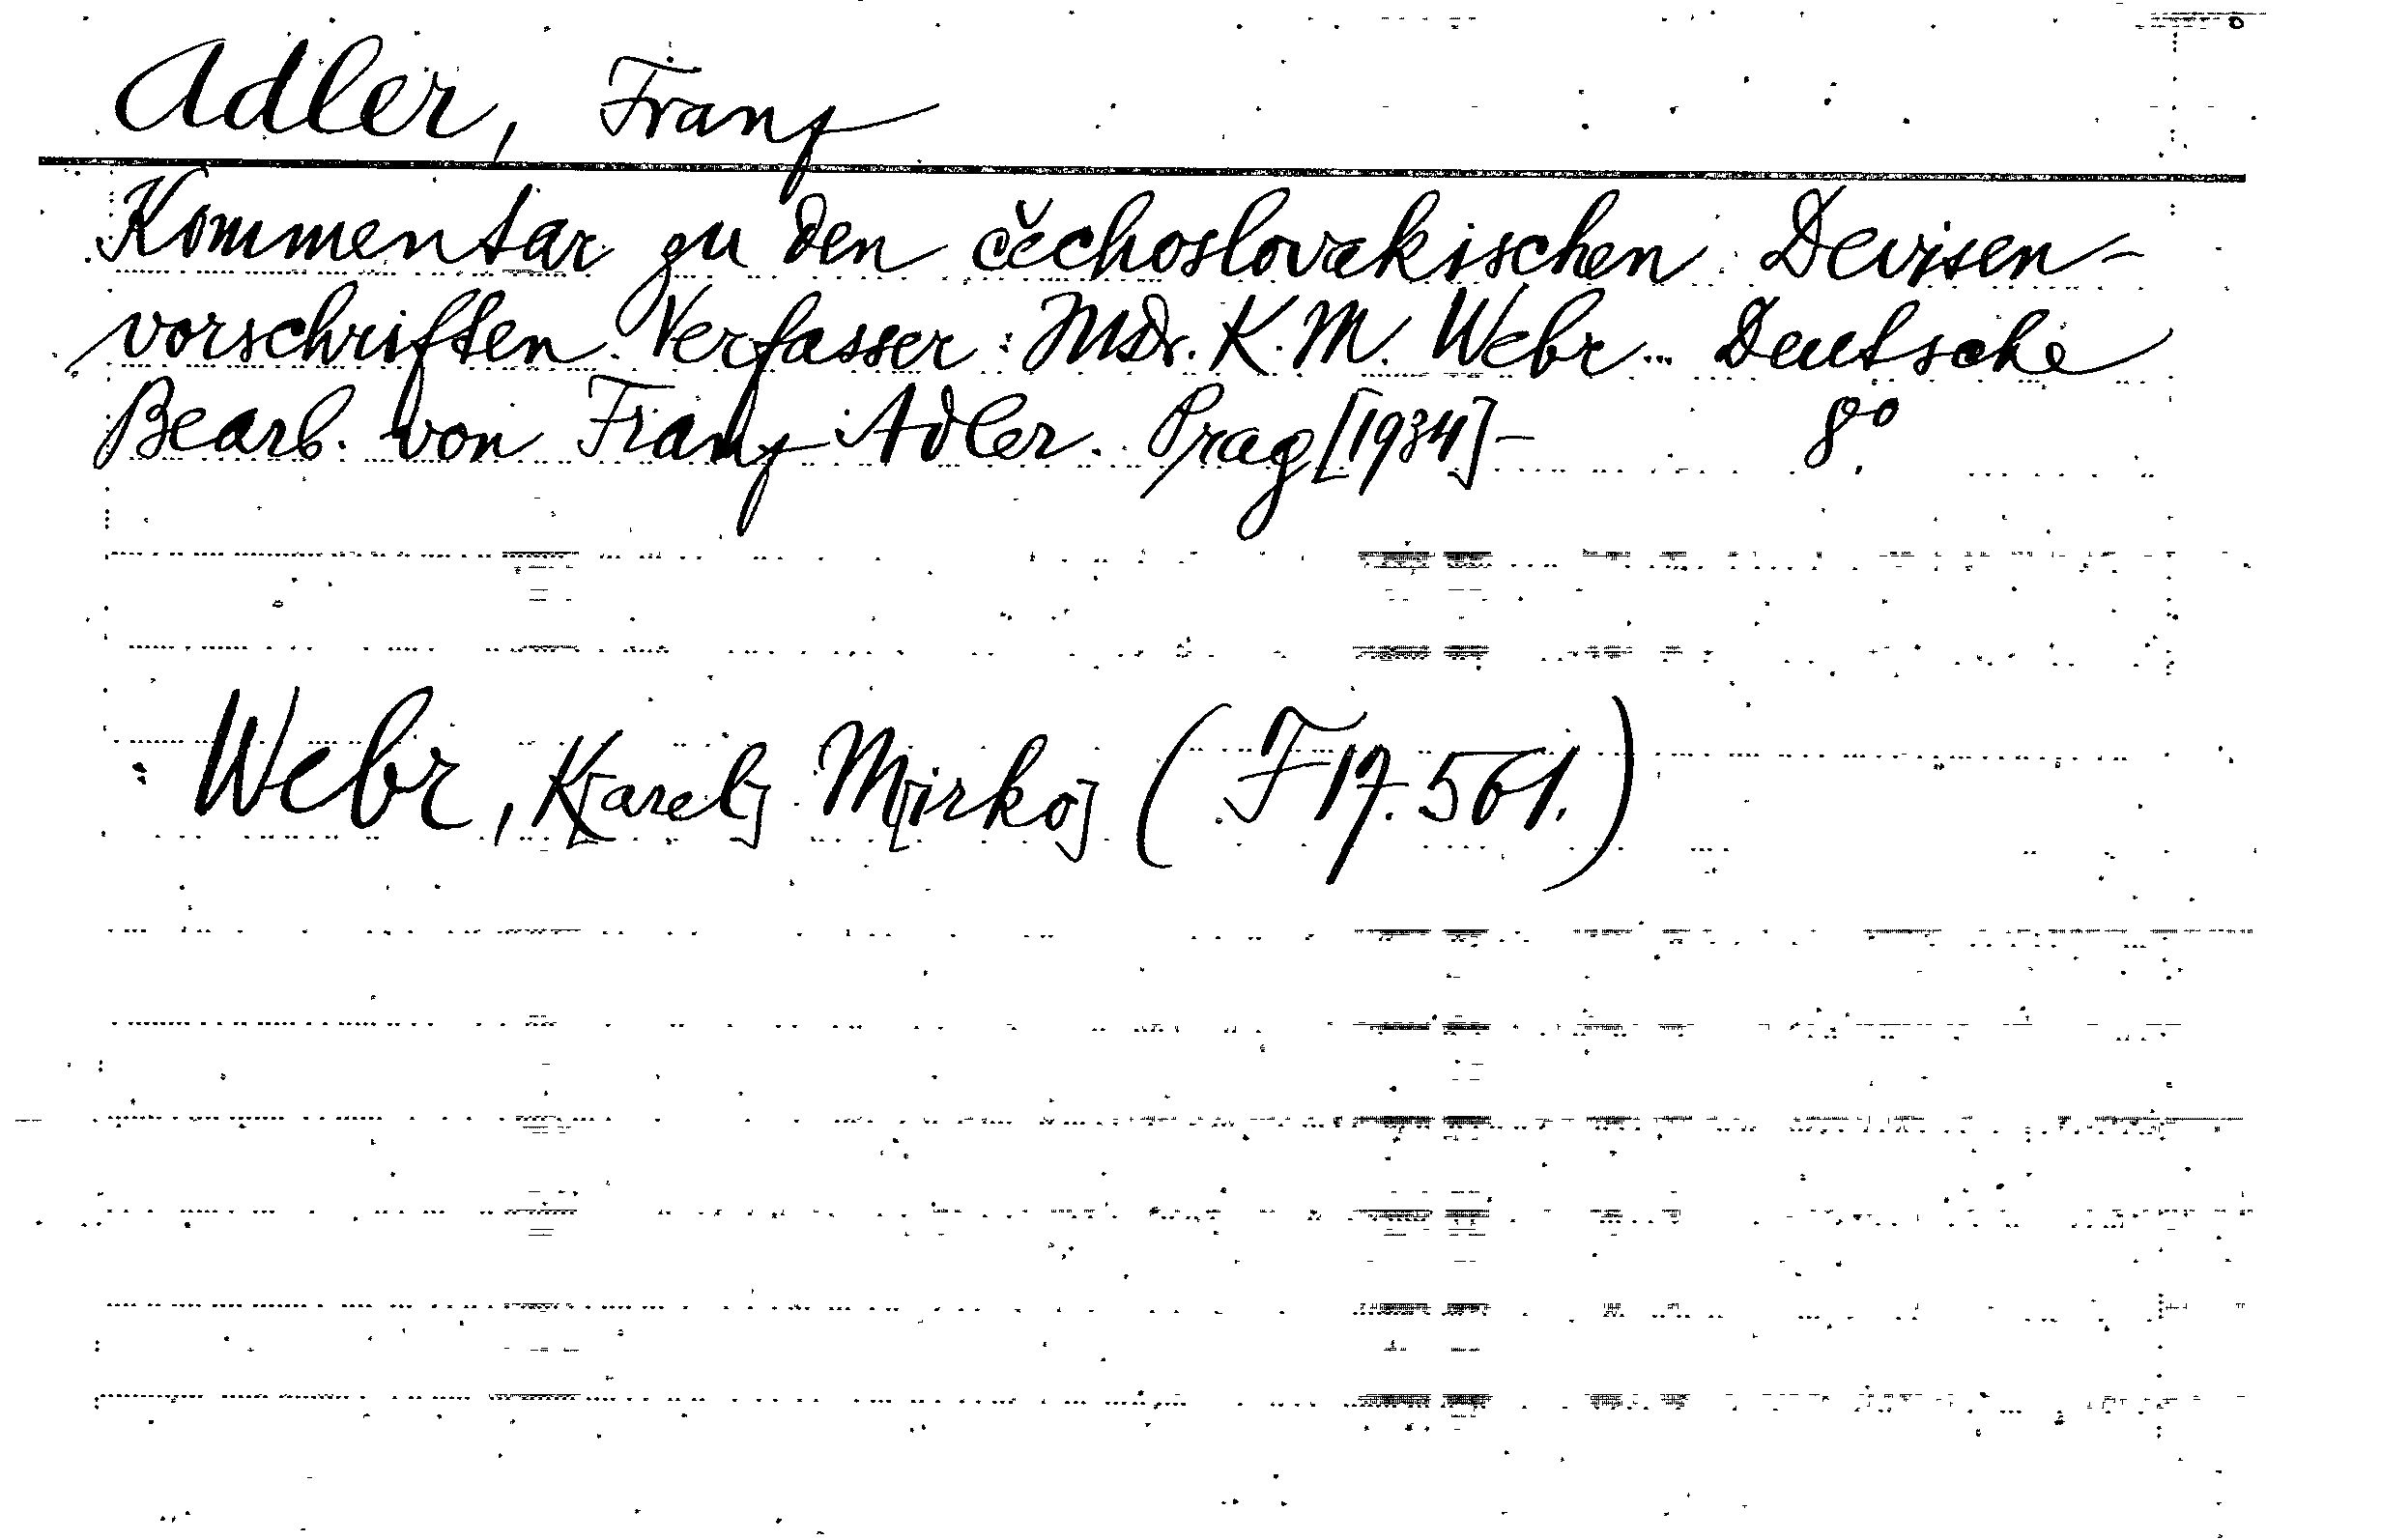 Adler, Franz
Kommentar zu den čechoslovakischen Devisen-
vorschriften. Verfasser: JUDr. K. M. Webr... Deutsche
Bearb. von Franz Adler. Prag [1934]— 8°
Webr, K[arel] M[irko] (F 17.561.)